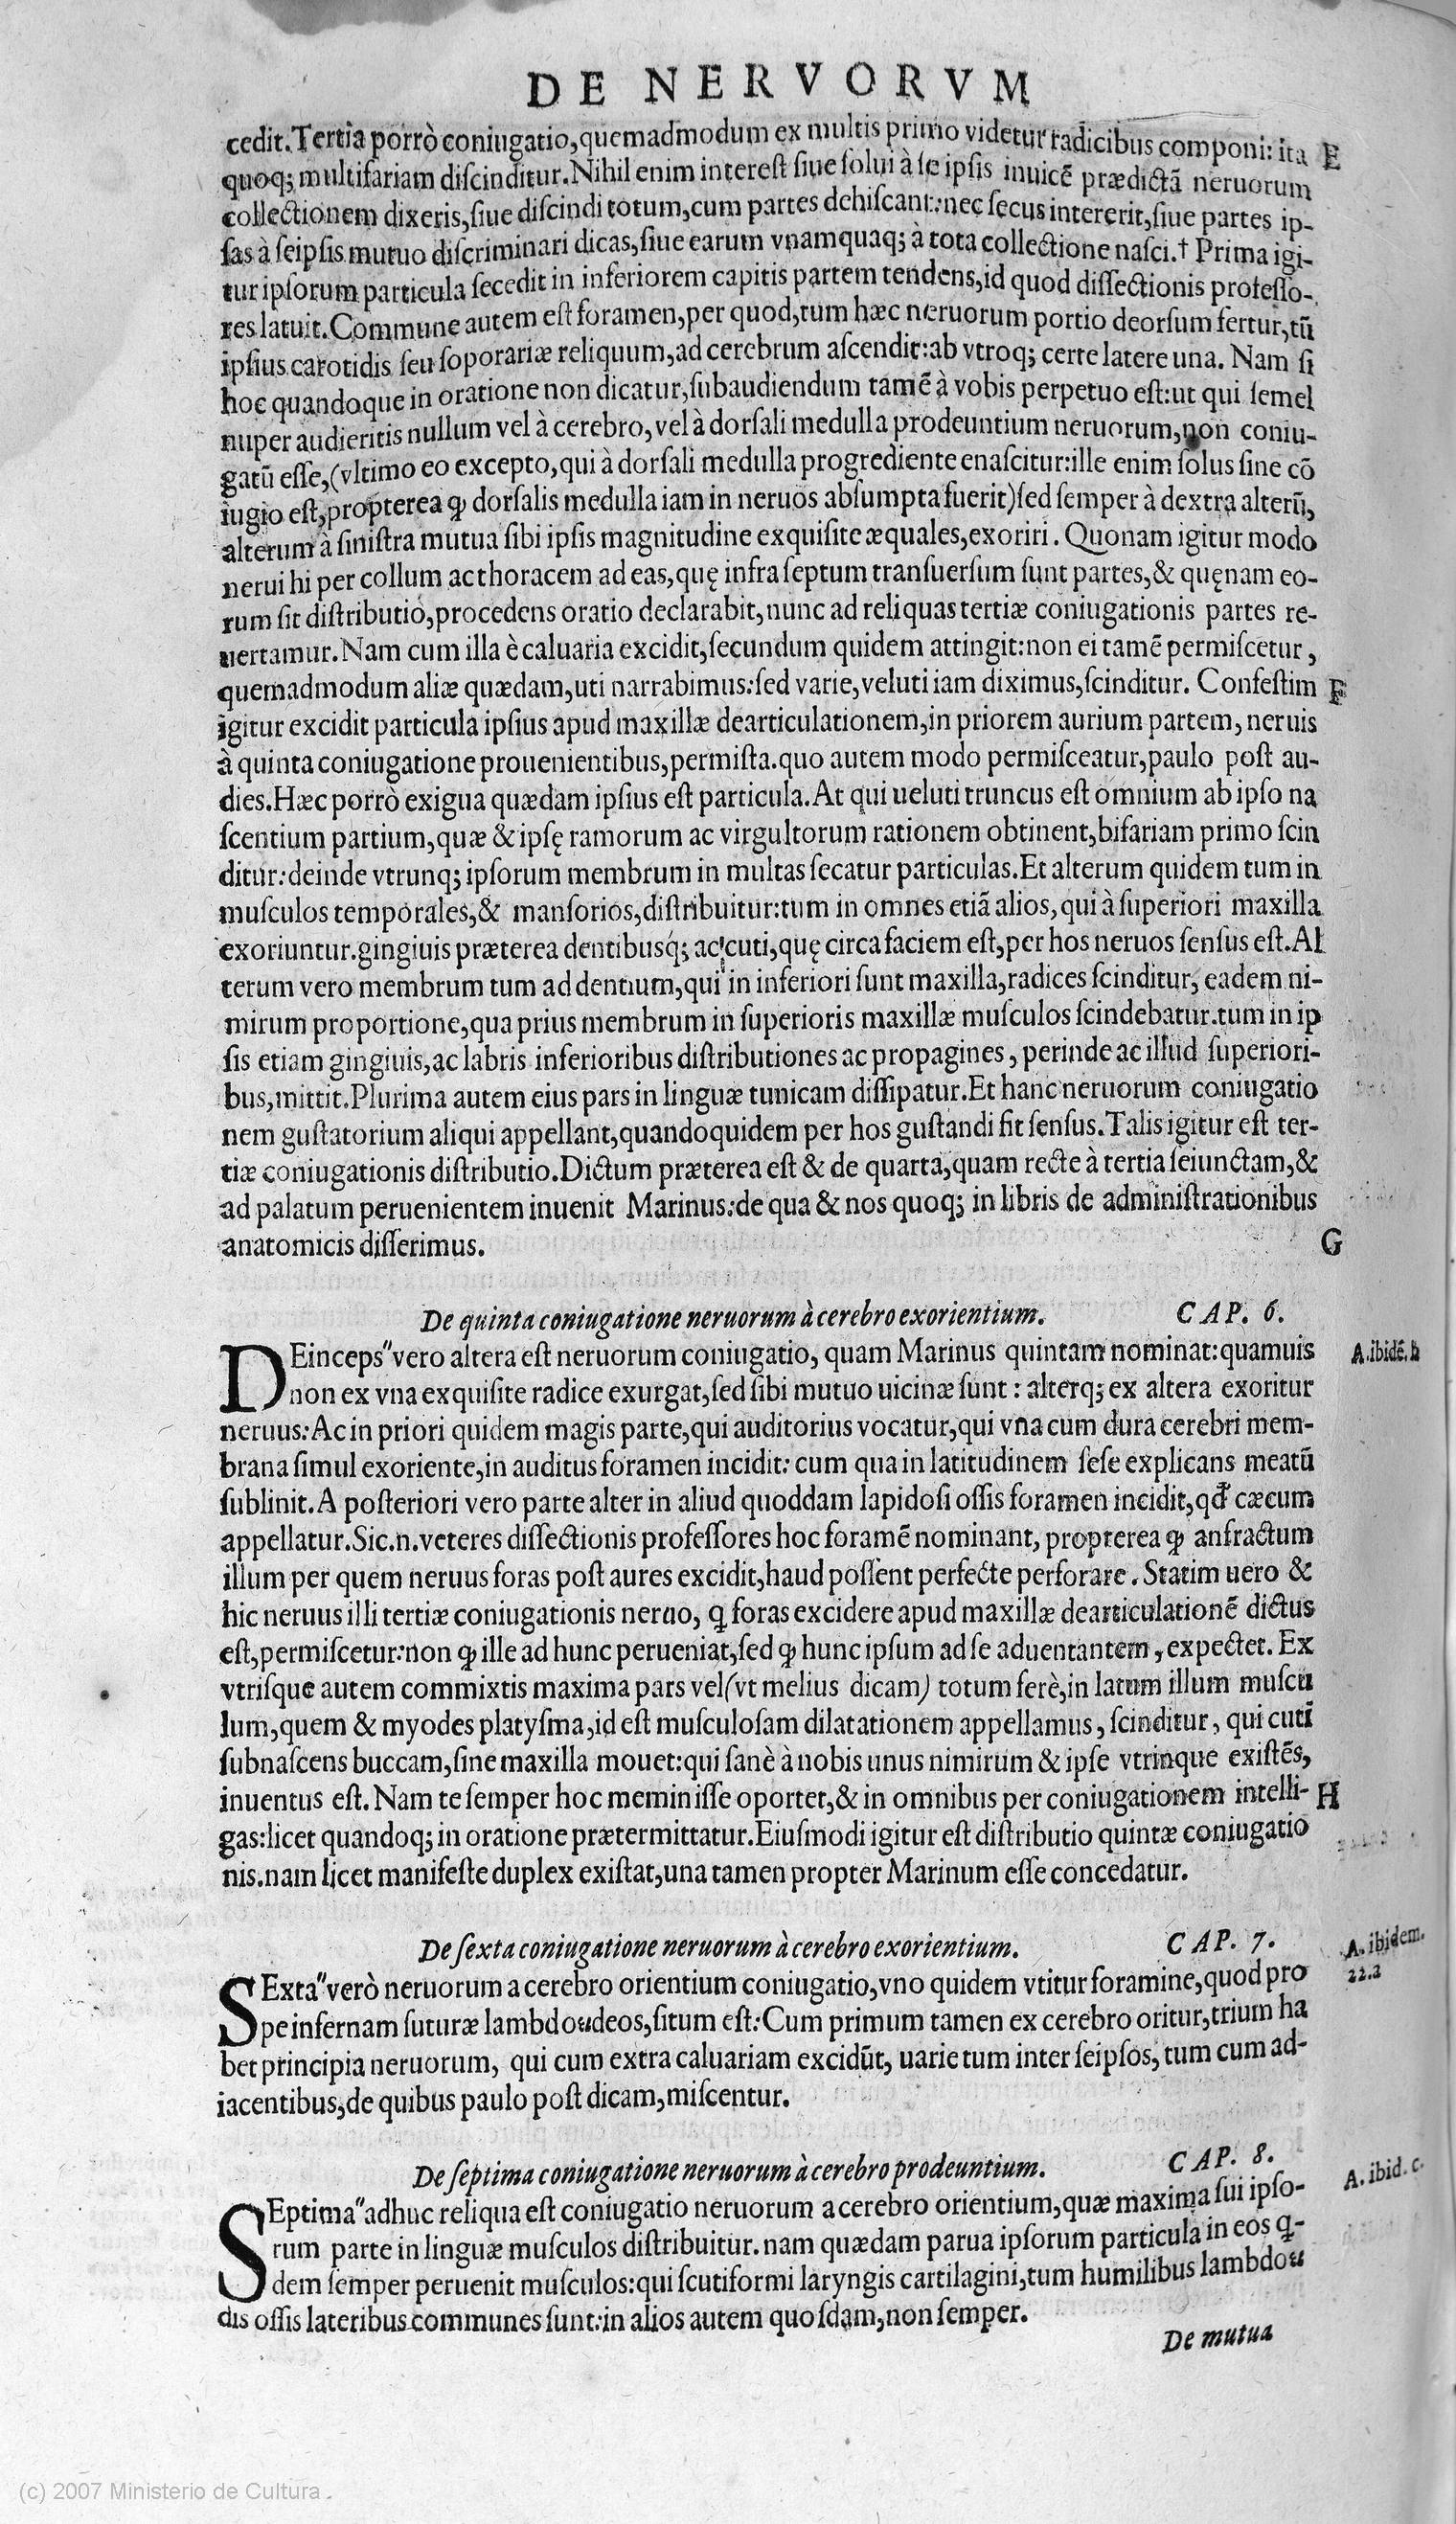 DE NERVORVM
cedit. Tertia porrò coniugatio, quemadmodum ex multis primo videtur radicibus componi: ita E
quoq; multifariam diſcinditur. Nihil enim intereſt ſiue ſolui à ſe ipſis inuicẽ prædictã neruorum
collectionem dixeris, ſiue diſcindi totum, cum partes dehiſcant: nec ſecus intererit, ſiue partes ip-
ſas à ſeipſis mutuo diſcriminari dicas, ſiue earum vnamquaq; à tota collectione naſci. † Prima igi-
tur ipſorum particula ſecedit in inferiorem capitis partem tendens, id quod diſſectionis profeſſo-
res latuit. Commune autem eſt foramen, per quod, tum hæc neruorum portio deorſum fertur, tũ
ipſius carotidis ſeu ſoporariæ reliquum, ad cerebrum aſcendit: ab vtroq; certe latere una. Nam ſi
hoc quandoque in oratione non dicatur, ſubaudiendum tamẽ à vobis perpetuo eſt: ut qui ſemel
nuper audieritis nullum vel à cerebro, vel à dorſali medulla prodeuntium neruorum, non coniu-
gatũ eſſe, (vltimo eo excepto, qui à dorſali medulla progrediente enaſcitur: ille enim ſolus ſine cõ
iugio eſt, propterea ꝙ dorſalis medulla iam in neruos abſumpta fuerit) ſed ſemper à dextra alterũ,
alterum à ſiniſtra mutua ſibi ipſis magnitudine exquiſite æquales, exoriri. Quonam igitur modo
nerui hi per collum ac thoracem ad eas, quę infra ſeptum tranſuerſum ſunt partes, & quęnam eo-
rum ſit diſtributio, procedens oratio declarabit, nunc ad reliquas tertiæ coniugationis partes re-
uertamur. Nam cum illa è caluaria excidit, ſecundum quidem attingit: non ei tamẽ permiſcetur,
quemadmodum aliæ quædam, uti narrabimus: ſed varie, veluti iam diximus, ſcinditur. Confeſtim F
igitur excidit particula ipſius apud maxillæ dearticulationem, in priorem aurium partem, neruis
à quinta coniugatione prouenientibus, permiſta. quo autem modo permiſceatur, paulo poſt au-
dies. Hæc porrò exigua quædam ipſius eſt particula. At qui ueluti truncus eſt omnium ab ipſo na
ſcentium partium, quæ & ipſę ramorum ac virgultorum rationem obtinent, bifariam primo ſcin
ditur: deinde vtrunq; ipſorum membrum in multas ſecatur particulas. Et alterum quidem tum in
muſculos temporales, & manſorios, diſtribuitur: tum in omnes etiã alios, qui à ſuperiori maxilla
exoriuntur. gingiuis præterea dentibusq́; ac cuti, quę circa faciem eſt, per hos neruos ſenſus eſt. Al
terum vero membrum tum ad dentium, qui in inferiori ſunt maxilla, radices ſcinditur, eadem ni-
mirum proportione, qua prius membrum in ſuperioris maxillæ muſculos ſcindebatur. tum in ip
ſis etiam gingiuis, ac labris inferioribus diſtributiones ac propagines, perinde ac illud ſuperiori-
bus, mittit. Plurima autem eius pars in linguæ tunicam diſſipatur. Et hanc neruorum coniugatio
nem guſtatorium aliqui appellant, quandoquidem per hos guſtandi fit ſenſus. Talis igitur eſt ter-
tiæ coniugationis diſtributio. Dictum præterea eſt & de quarta, quam recte à tertia ſeiunctam, &
ad palatum peruenientem inuenit Marinus: de qua & nos quoq; in libris de adminiſtrationibus
anatomicis diſſerimus. G
De quinta coniugatione neruorum à cerebro exorientium. CAP. 6.
DEinceps" vero altera eſt neruorum coniugatio, quam Marinus quintam nominat: quamuis A. ibidẽ. h
non ex vna exquiſite radice exurgat, ſed ſibi mutuo uicinæ ſunt: alterq; ex altera exoritur
neruus: Ac in priori quidem magis parte, qui auditorius vocatur, qui vna cum dura cerebri mem-
brana ſimul exoriente, in auditus foramen incidit: cum qua in latitudinem ſeſe explicans meatũ
ſublinit. A poſteriori vero parte alter in aliud quoddam lapidoſi oſſis foramen incidit, qđ cæcum
appellatur. Sic. n. veteres diſſectionis profeſſores hoc foramẽ nominant, propterea ꝙ anfractum
illum per quem neruus foras poſt aures excidit, haud poſſent perfecte perforare. Statim uero &
hic neruus illi tertiæ coniugationis neruo, q̃ foras excidere apud maxillæ dearticulationẽ dictus
eſt, permiſcetur: non ꝙ ille ad hunc perueniat, ſed ꝙ hunc ipſum ad ſe aduentantem, expectet. Ex
vtriſque autem commixtis maxima pars vel (vt melius dicam) totum ferè, in latum illum muſcu
lum, quem & myodes platyſma, id eſt muſculoſam dilatationem appellamus, ſcinditur, qui cuti
ſubnaſcens buccam, ſine maxilla mouet: qui ſanè à nobis unus nimirum & ipſe vtrinque exiſtẽs,
inuentus eſt. Nam te ſemper hoc meminiſſe oportet, & in omnibus per coniugationem intelli- H
gas: licet quandoq; in oratione prætermittatur. Eiuſmodi igitur eſt diſtributio quintæ coniugatio
nis. nam licet manifeſte duplex exiſtat, una tamen propter Marinum eſſe concedatur.
De ſexta coniugatione neruorum à cerebro exorientium. CAP. 7.
A. ibidem.
22.2
SExta" verò neruorum a cerebro orientium coniugatio, vno quidem vtitur foramine, quod pro
pe infernam ſuturæ lambdoudeos, ſitum eſt: Cum primum tamen ex cerebro oritur, trium ha
bet principia neruorum, qui cum extra caluariam excidũt, uarie tum inter ſeipſos, tum cum ad-
iacentibus, de quibus paulo poſt dicam, miſcentur.
De ſeptima coniugatione neruorum à cerebro prodeuntium. CAP. 8.
SEptima" adhuc reliqua eſt coniugatio neruorum a cerebro orientium, quæ maxima ſui ipſo- A. ibid. c.
rum parte in linguæ muſculos diſtribuitur. nam quædam parua ipſorum particula in eos q̃-
dem ſemper peruenit muſculos: qui ſcutiformi laryngis cartilagini, tum humilibus lambdou
dis oſſis lateribus communes ſunt: in alios autem quoſdam, non ſemper.
De mutua
(c) 2007 Ministerio de Cultura